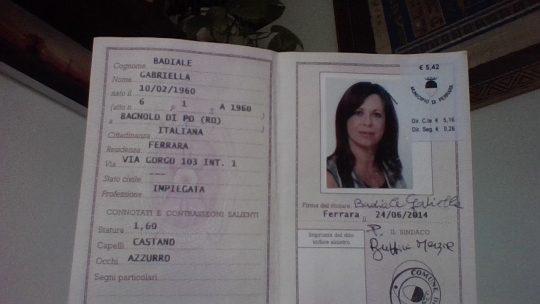 Cognome BADIALE
Nome GABRIELLA
nato il 10/02/1960
(atto n. 6 P. 1 S. A 1960)
a BAGNOLO DI PO (RO)
Cittadinanza ITALIANA
Residenza FERRARA
Via VIA GORGO 103 INT. 1
Stato civile ---
Professione IMPIEGATA
CONNOTATI E CONTRASSEGNI SALIENTI
Statura 1,60
Capelli CASTANO
Occhi AZZURRO
Segni particolari
€ 5,42
MUNICIPIO DI FERRARA
Dir. C.Ie € 5,16
Dir. Seg. € 0,26
Firma del titolare Badiale Gabriella
Ferrara il 24/06/2014
Impronta del dito
indice sinistro
P. IL SINDACO
COMUNE DI